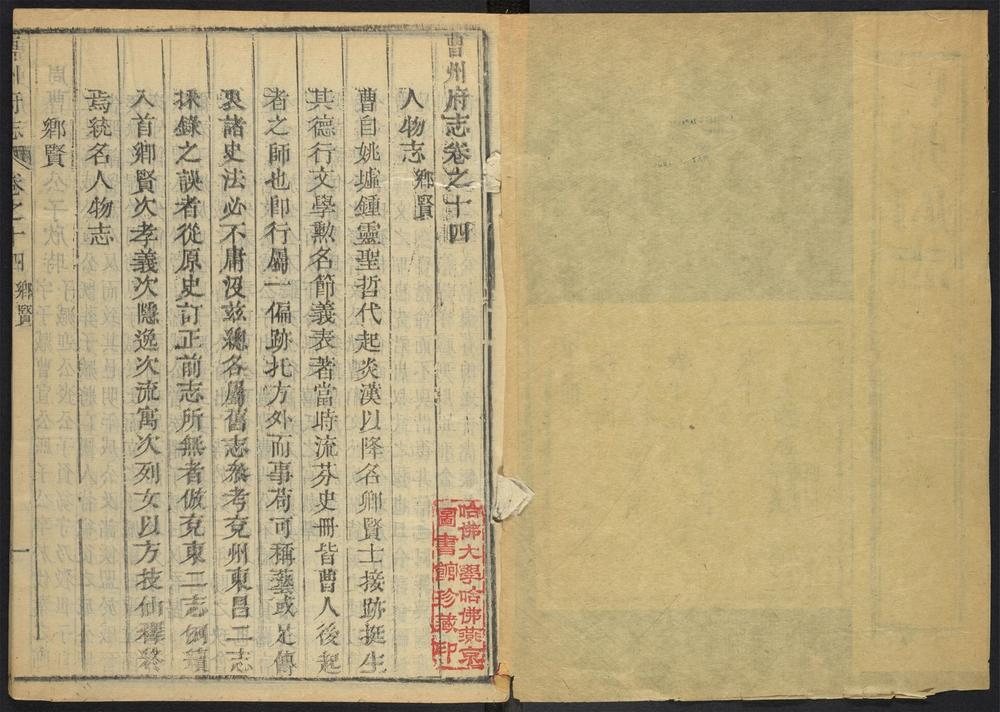 曹州府志卷之十四
人物志 鄉賢
曹自姚墟鍾靈聖哲代起炎漢以降名卿賢士接跡挺生
其德行文學勲名節義表著當時流芬史冊皆曹人後起
者之師也卽行屬一偏跡托方外而事苟可稱藝或足傳
衷諸史法必不庸没玆總各屬舊志叅考兗州東昌二志
採錄之誤者從原史訂正前志所無者倣兗東二志例續
入首鄉賢次孝義次隱逸次流寓次列女以方技仙釋終
焉統名人物志
鄉賢
曹州府志 卷之十四 鄉賢 一
哈佛大學哈佛燕京
圖書館珍藏印